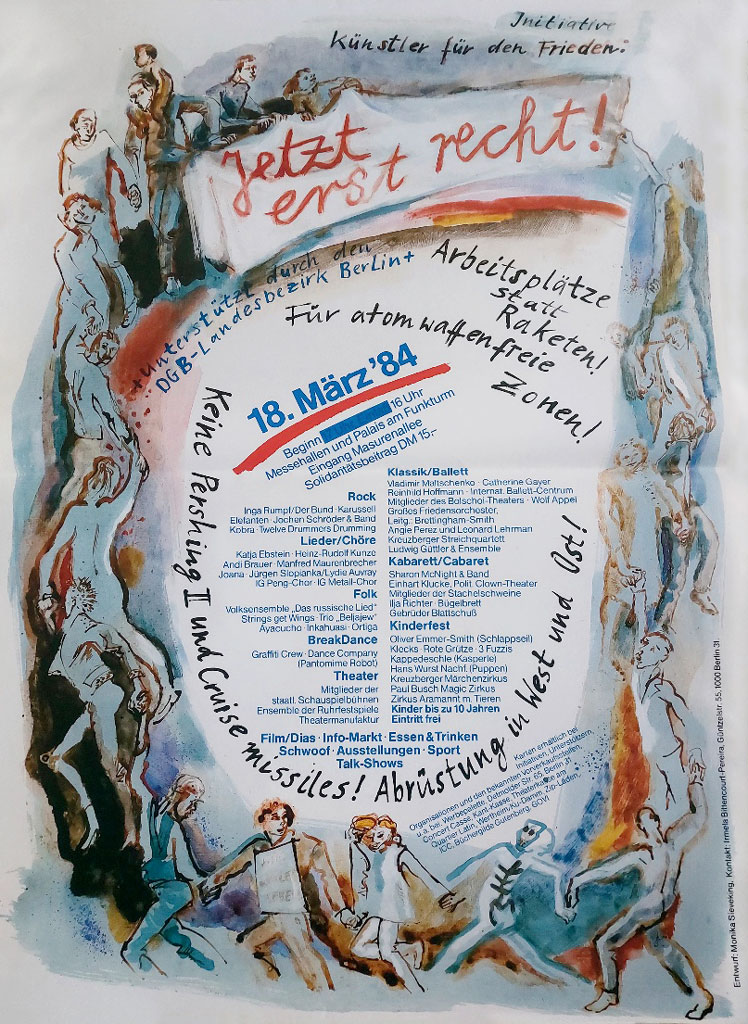 Initiative
Künstler für den Frieden:
Jetzt
erst recht!
+unterstützt durch den
DGB-Landesbezirk Berlin+
Arbeitsplätze
statt
Raketen!
Für atomwaffenfreie
Zonen!
Keine Pershing II und Cruise missiles! Abrüstung in West und Ost!
18. März '84
Beginn 16 Uhr
Messehallen und Palais am Funkturm
Eingang Masurenallee
Solidaritätsbeitrag DM 15,-
Rock
Inga Rumpf/Der Bund · Karussell
Elefanten · Jochen Schröder & Band
Kobra · Twelve Drummers Drumming
Lieder/Chöre
Katja Ebstein · Heinz-Rudolf Kunze
Andi Brauer · Manfred Maurenbrecher
Joana · Jürgen Slopianka/Lydie Auvray
IG Peng-Chor · IG Metall-Chor
Folk
Volksensemble „Das russische Lied"
Strings get Wings · Trio „Beljajew"
Ayacucho · Inkahuasi · Ortiga
BreakDance
Graffiti Crew · Dance Company
(Pantomime Robot)
Theater
Mitglieder der
staatl. Schauspielbühnen
Ensemble der Ruhrfestspiele
Theatermanufaktur
Klassik/Ballett
Vladimir Maltschenko · Catherine Gayer
Reinhild Hoffmann · Internat. Ballett-Centrum
Mitglieder des Bolschoi-Theaters · Wolf Appel
Großes Friedensorchester,
Leitg.: Brettingham-Smith
Angie Perez und Leonard Lehrman
Kreuzberger Streichquartett
Ludwig Güttler & Ensemble
Kabarett/Cabaret
Sharon McNight & Band
Einhart Klucke, Polit. Clown-Theater
Mitglieder der Stachelschweine
Ilja Richter · Bügelbrett
Gebrüder Blattschuß
Kinderfest
Oliver Emmer-Smith (Schlappseil)
Klecks · Rote Grütze · 3 Fuzzis
Kappedeschle (Kasperle)
Hans Wurst Nachf. (Puppen)
Kreuzberger Märchenzirkus
Paul Busch Magic Zirkus
Zirkus Aramannt m. Tieren
Kinder bis zu 10 Jahren
Eintritt frei
Film/Dias · Info-Markt · Essen & Trinken
Schwoof · Ausstellungen · Sport
Talk-Shows
Karten erhältlich bei
Initiativen, Unterstützern,
Organisationen und den bekannten Vorverkaufsstellen,
u.a. bei Werbepalette, Detmolder Str. 65, Berlin 31
Concert Casse, Kant-Kasse, Theaterkasse am
Quartier Latin, Wertheim/Ku-Damm, Zip-Läden,
ICC, Büchergilde Gutenberg, GOVI
Entwurf: Monika Sieveking, Kontakt: Irmela Bittencourt-Pereira, Güntzelstr. 55, 1000 Berlin 31